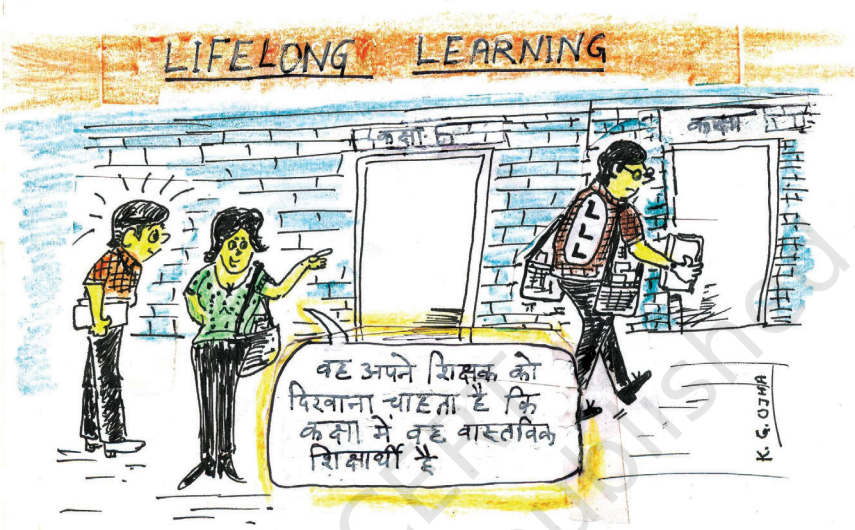 LIFELONG LEARNING
कक्षा 6
कक्षा
LLL
वह अपने शिक्षक को
दिखाना चाहता है कि
कक्षा में वह वास्तविक
शिक्षार्थी है
K. G. OJHA